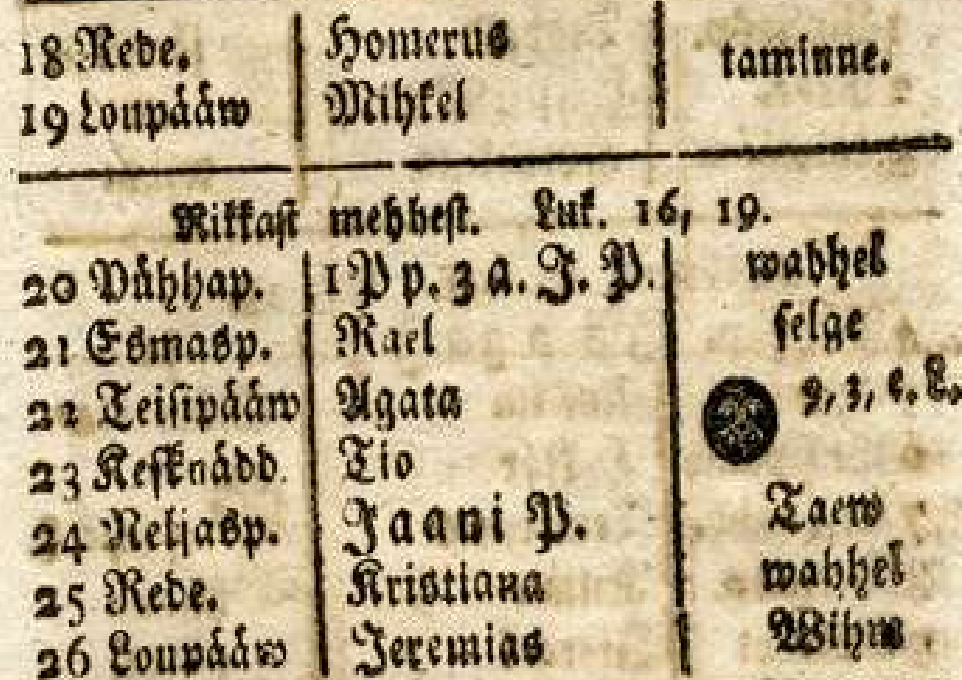 18 Rede. Homerus taminne.
19 Loupääw Mihkel
Rikkast mehhest. Luk. 16, 19.
20 Pühhap. 1 P p. 3 a. J. P. wahhel
21 Esmasp. Rael selge
22 Teisipääw Agata 9, 3, e. L.
23 Kesknädd. Tio
24 Neljasp. Jaani P. Taew
25 Rede. Kristiana wahhel
26 Loupääw Jeremias Wihm